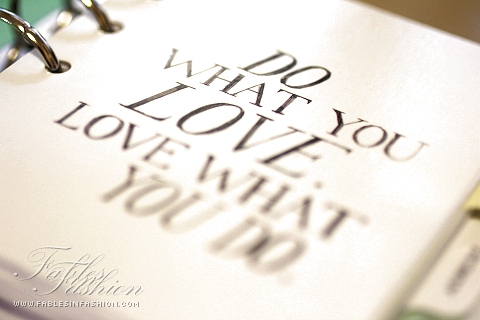 DO
WHAT YOU
LOVE.
LOVE WHAT
YOU DO.
Fables in Fashion
WWW.FABLESINFASHION.COM